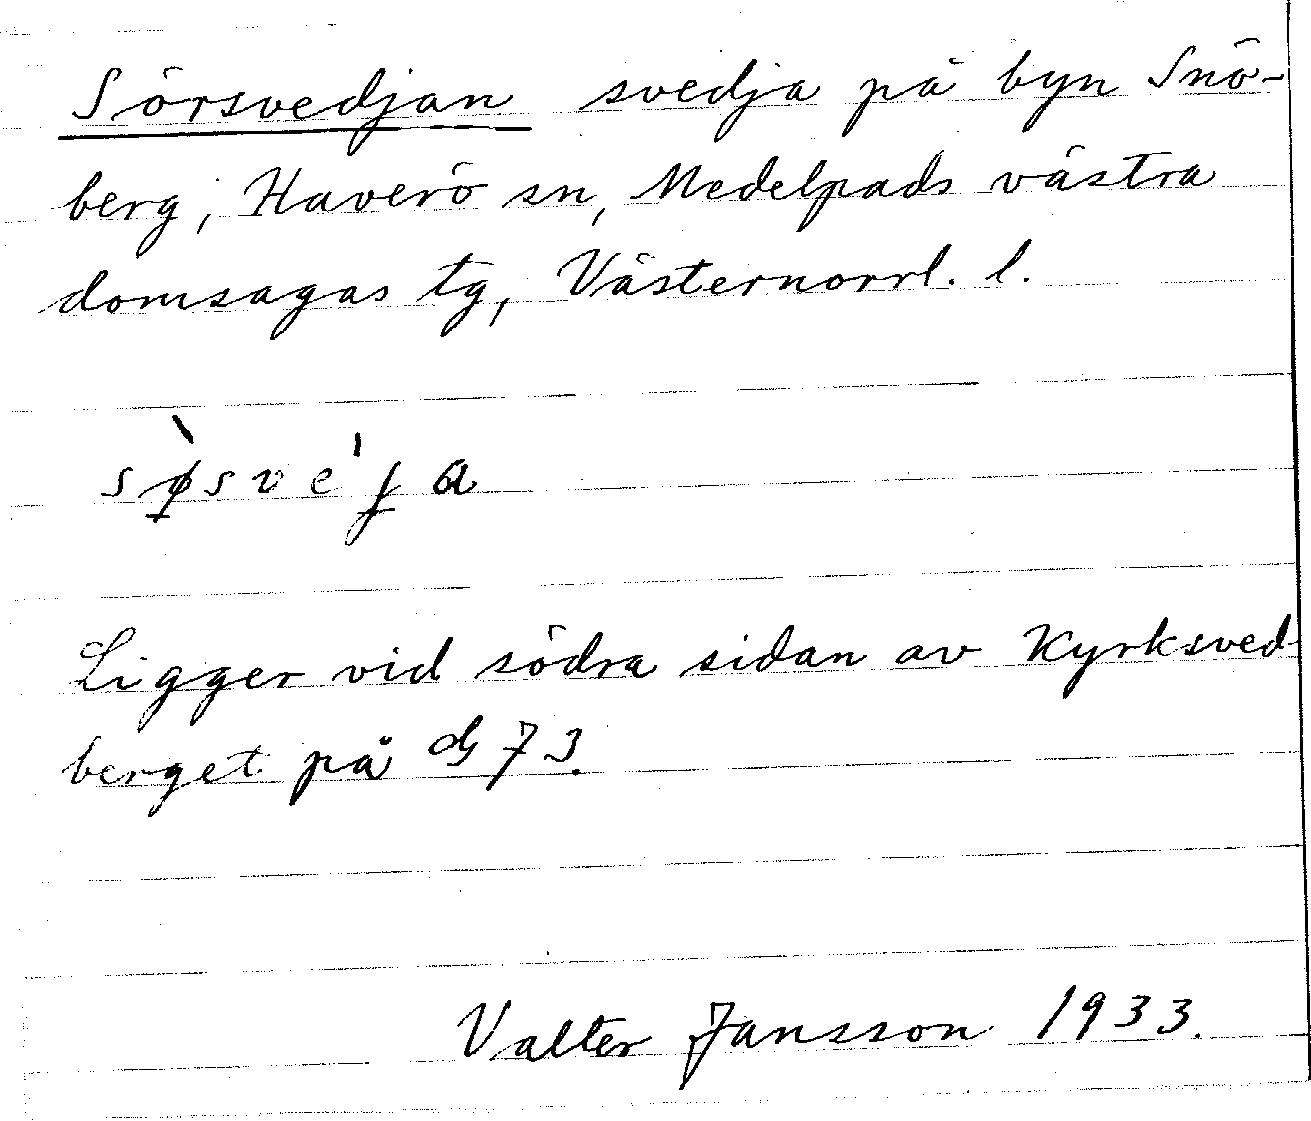 Sörsvedjan svedja på byn Snö-
berg, Haverö sn, Medelpads västra
domsagas tg, Västernorrl. l.
sø̀sve'ja
Ligger vid södra sidan av Kyrksved-
berget på 73.
Valter Jansson 1933.